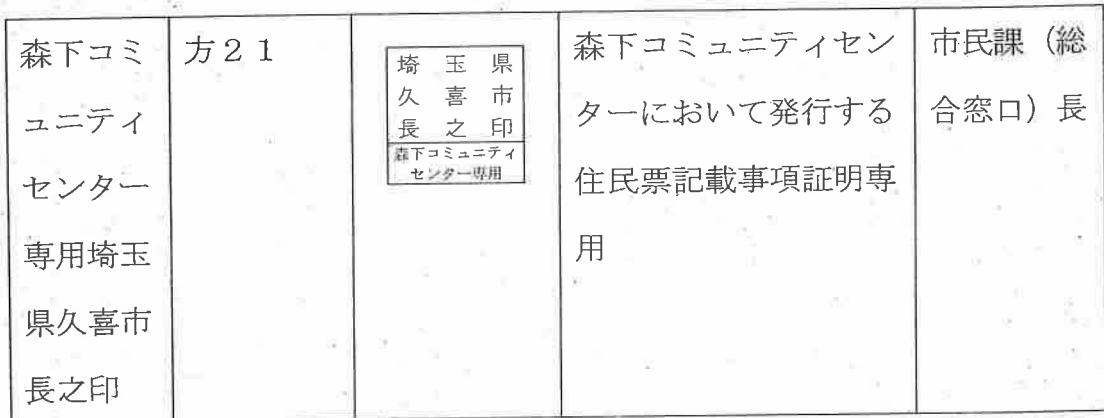 森下コミ
ュニティ
センター
専用埼玉
県久喜市
長之印
方２１
埼玉県
久喜市
長之印
森下コミュニティ
センター専用
森下コミュニティセン
ターにおいて発行する
住民票記載事項証明専
用
市民課（総
合窓口）長